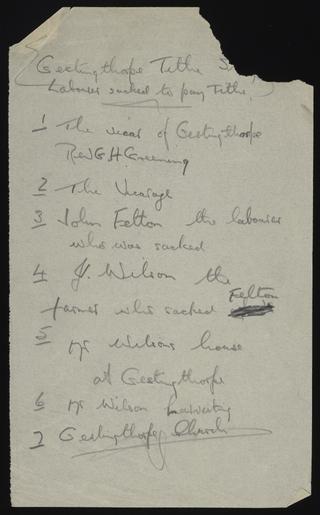 (Gestingthorpe Tithe S
Labourer sacked to pay Tithe!)
1 The vicar of Gestingthorpe
Rev G H Greening
2 The Vicarage
3 John Felton the labourer
who was sacked
4 J. Wilson the
farmer who sacked Felton
5 Mr Wilsons house
at Gestingthorpe
6 Mr Wilson harvesting
7 Gestingthorpe Church